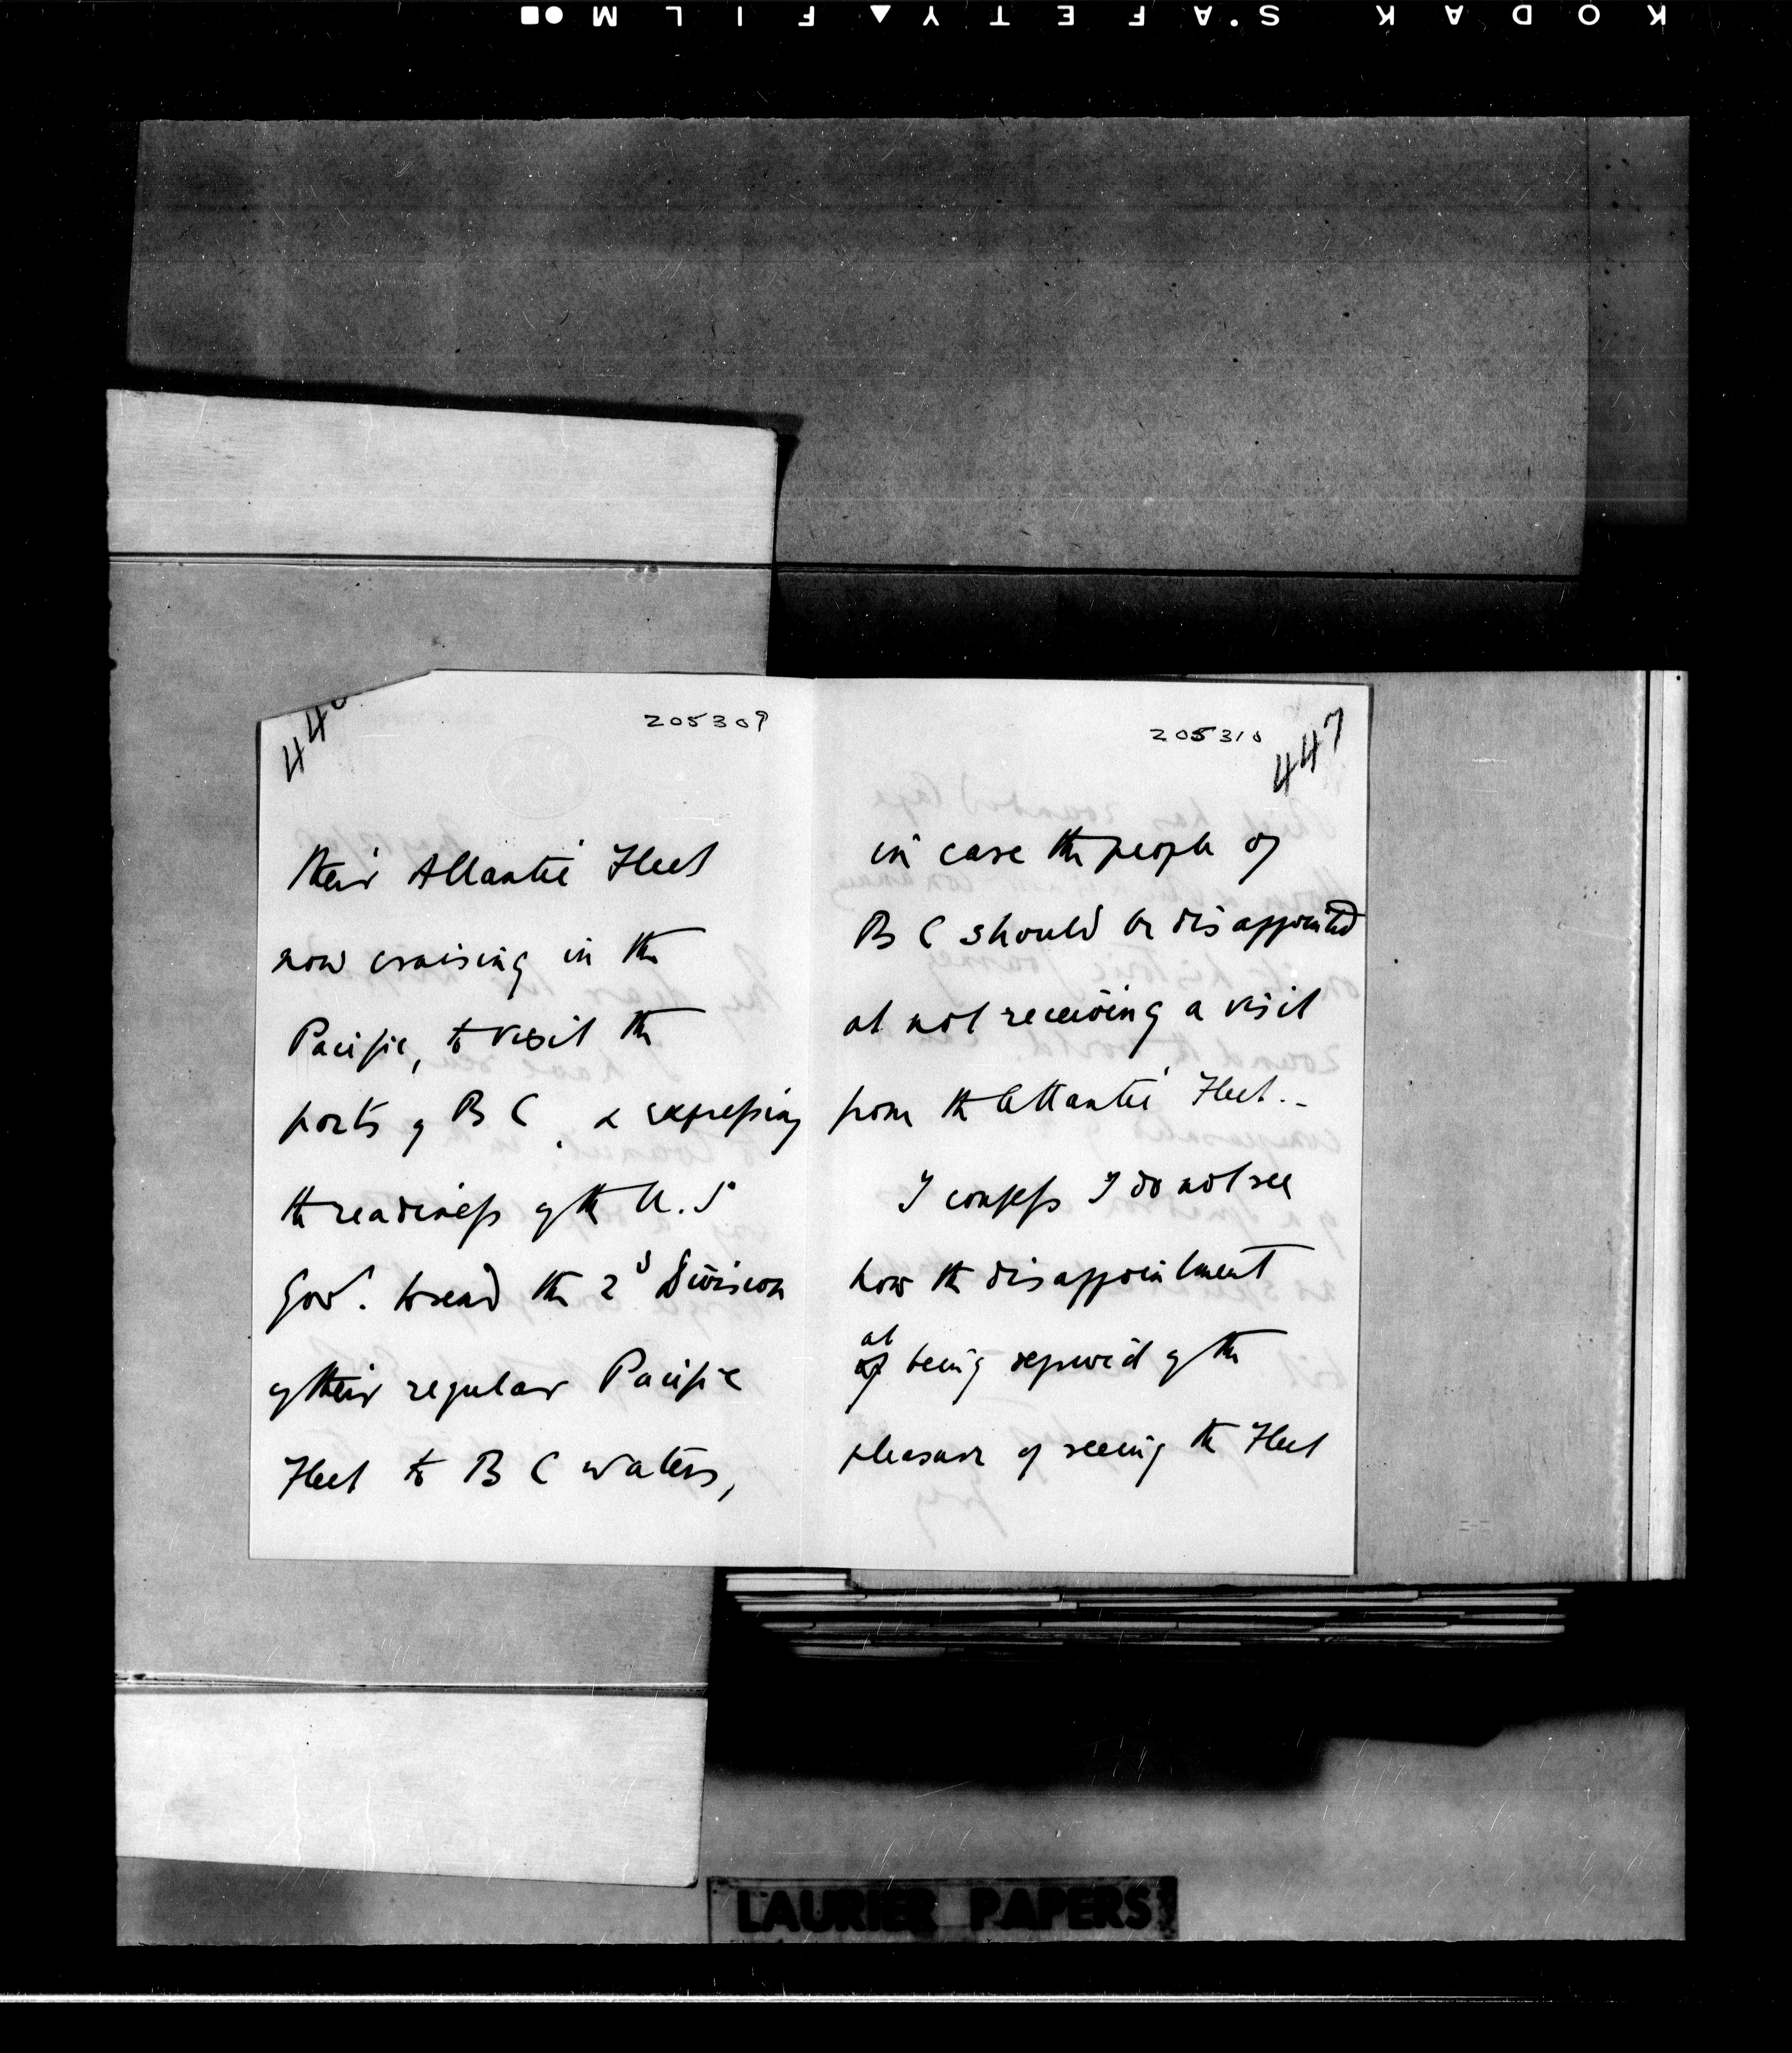 KODAK SAFETY FILM
446
205309
their Atlantic Fleet
now cruising in the
Pacific, to visit the
ports of B C, & expressing
the readiness of the U.S
Govt. to send the 2d Division
of their regular Pacific
Fleet to B C waters,
205310
447
in case the people of
B C should be disappointed
at not receiving a visit
from the Atlantic Fleet. -
I confess I do not see
how the disappointment
at
of being deprived of the
pleasure of seeing the Fleet
LAURIER PAPERS